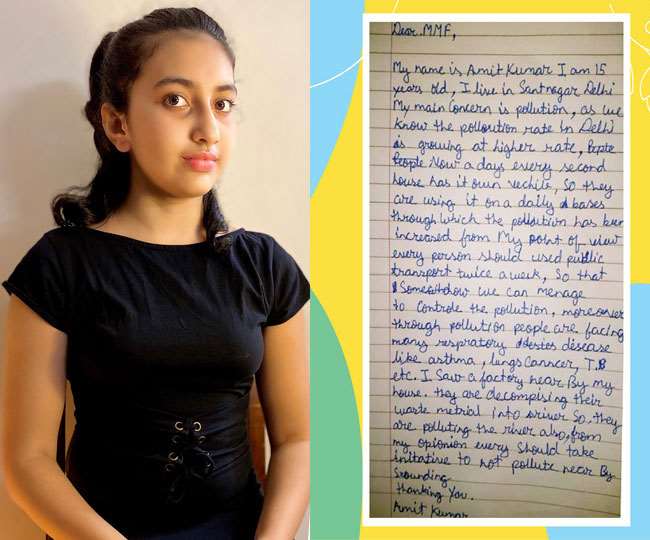 Dear MMF,
My name is Amit Kumar I am 15
years old, I live in Santnagar Delhi
My main Concern is pollution, as we
know the polloution rate in Delhi
is growing at higher rate, Pepte
People Now a days every second
house has it own vechile, So they
are using it on a daily bases
through which the polloution has been
increased from My point of view
every person should used public
transport twice a week, So that
Somewhow we can menage
to controle the pollution, moreover
through pollution people are facing
many respiratory disease
like asthma, lungs Canncer, T.B
etc. I Saw a factory near By my
house. they are decompising their
waste metrial into sriver So. they
are polluting the river also, from
my opionion every Should take
initative to not pollute near By
Srounding
thanking You.
Amit Kumar